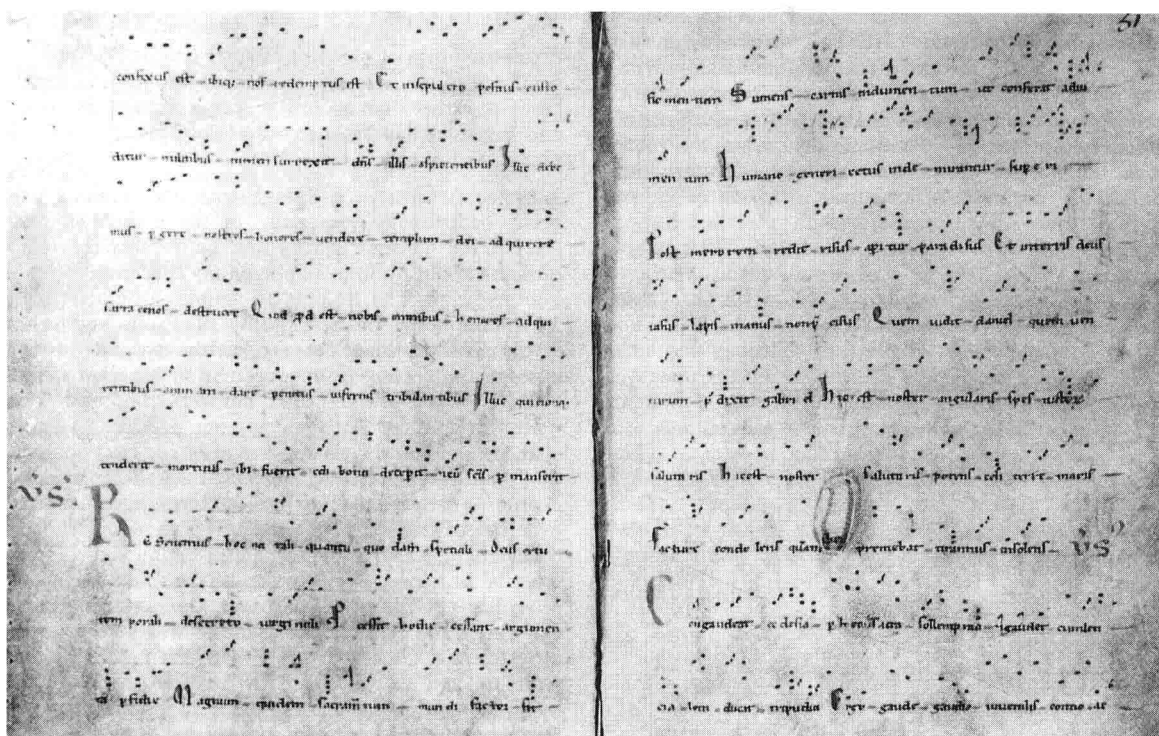 confixus est ibiq; nos redemptus est Et insepulcro positus custo
ditur militibus surrexit dns illis aspicientibus Illuc debe
mus pgere nostros honores vendere templum dei adquirere
sarracenos destruere Quid pdest nobis omnibus honores adqui
rentibus animam dare penitus infernis tribulantibus Illuc quicunq;
tenderit mortuus ibi fuerit celi bona scis pmanserit
vs Resonemus hoc natali quantu quodam speciali Deus ortu
temporali desecreto virginali Pcessit hodie cessant argumen
ta pfidie Magnum quidem sacram tum mundi factor
51
sic men tum Sumens carnis indumen tum ut conferat adiu
men tum humano generi cetus inde mirantur supe ri
Post merorem redit risus aperitur paradisus Et interris
lapis manus non cisus Quem vidit daniel quem uen
turum pdixit gabriel hic est noster angularis spes
salutaris hic est noster salutaris potens celi terre maris
Facture condolens quam premebat tirannus insolens vs
Congaudeat ecclesia p hec sollempnia gaudet
ducit tripudia Ergo gaude gaudio iuvenilis concio